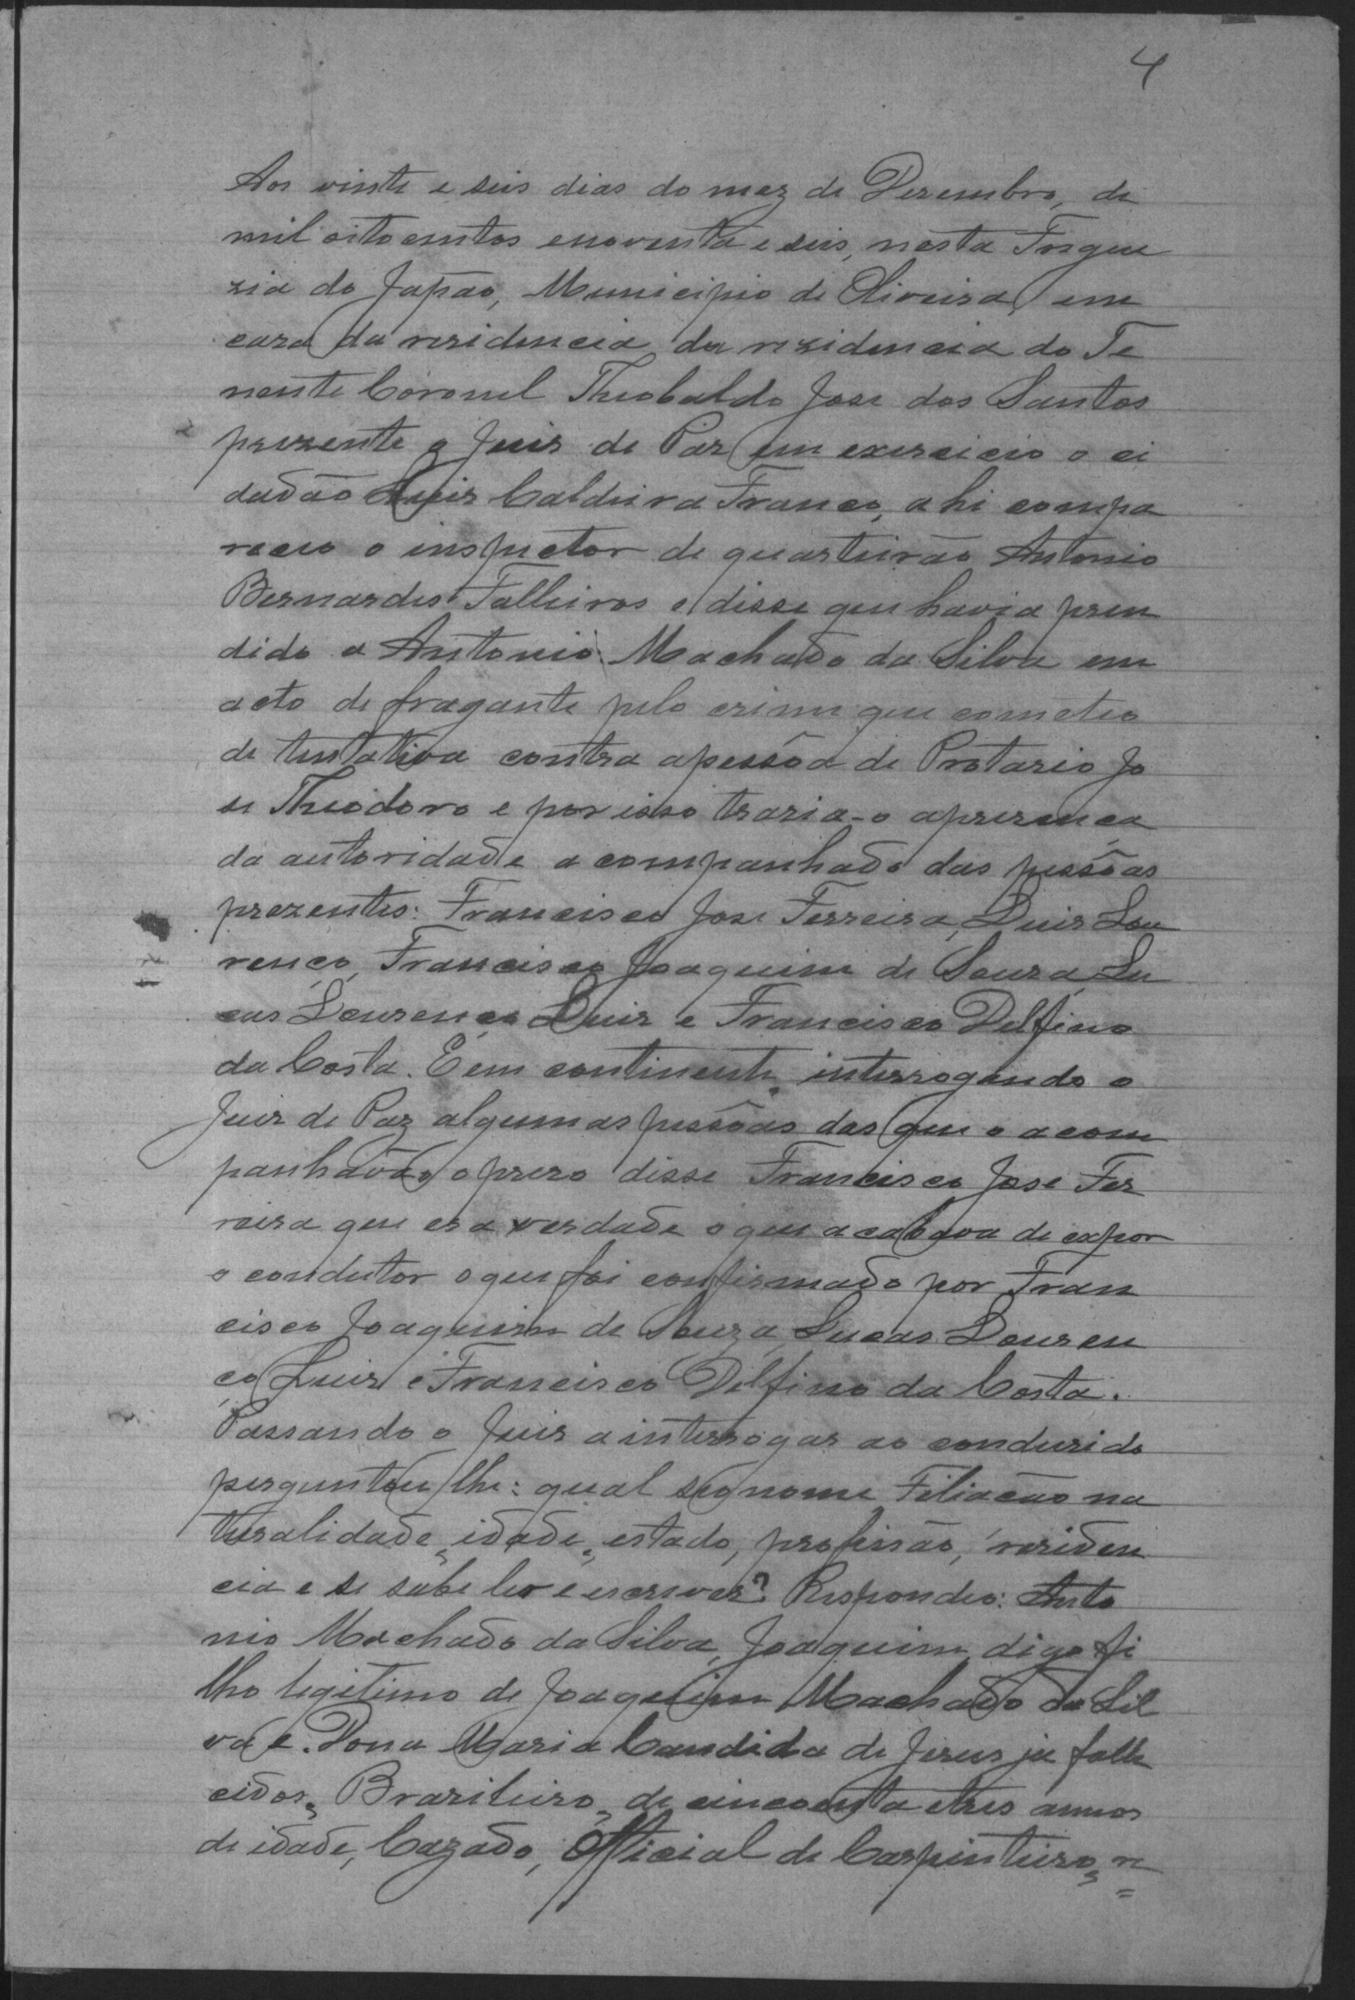 4
Aos vinte e seis dias do mez de Dezembro, de
mil oitocentos enoventa e seis, nesta Fregue
zia do Japão, Municipio de Oliveira, em
caza da residencia da rezidencia do Te
nente Coronel Theobaldo Jose dos Santos
prezente o Juis de Paz em exercicio o ci
dadão Luis Caldeira Franco, ahi compa
receo o inspector de quarteirão Antonio
Bernardes Falleiros e disse que havia pren
dido a Antonio Machado da Silva em
acto de fragante pelo crime que cometeo
de tentativa contra apessôa de Protazio Jo
se Theodoro e por isso trazia-o aprezença
da autoridade acompanhado das pessôas
prezentes: Francisco Jose Ferreira, Luis Lou
renço, Francisco Joaquim de Souza, Lu
cas Lourenço Luis e Francisco Delfino
da Costa. E em continente interrogando o
Juiz de Paz algumas pessôas das que o acom
panhavão o prezo disse Francisco Jose Fer
reira que era verdade oque acabava de expor
o condutor oque foi confirmado por Fran
cisco Joaquim de Souza, Lucas Louren
ço Luis e Francisco Delfino da Costa.
Passando o Juis a interrogar ao conduzido
perguntou lhe: qual seo nome Filiação na
turalidade, idade, estado, profissão, reziden
cia e se sabe ler e escrever? Respondeo: Anto
nio Machado da Silva, Joaquim, digo fi
lho legitimo de Joaquim Machado da Sil
va e Dona Maria Candida de Jezus ja falle
cidos, Brazileiro, de cincoenta etres annos
de idade, Cazado, Official de Carpinteiro, re